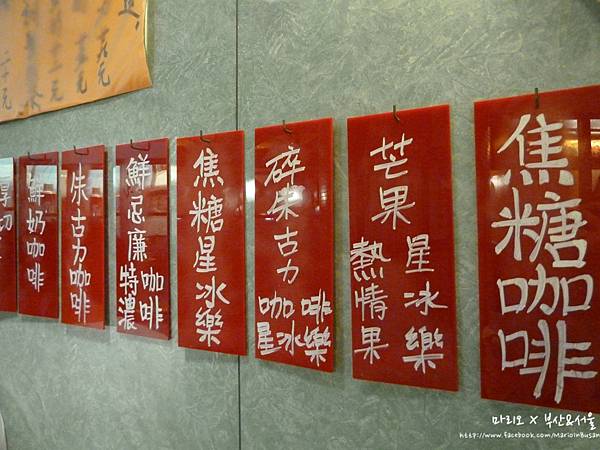 厚切
鮮奶咖啡
朱古力咖啡
鮮忌廉
特濃
咖啡
焦糖星冰樂
碎朱古力
咖啡
星冰樂
芒果
熱情果
星冰樂
焦糖咖啡
마리오 X 부산&서울
http://www.facebook.com/MarioInBusan